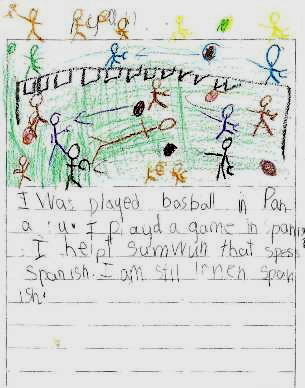 I Was played basball in Pan
a : u. I playd a game in pani
. I helpt sumwun that spess
Spanish. I am still lrneh span
ish.